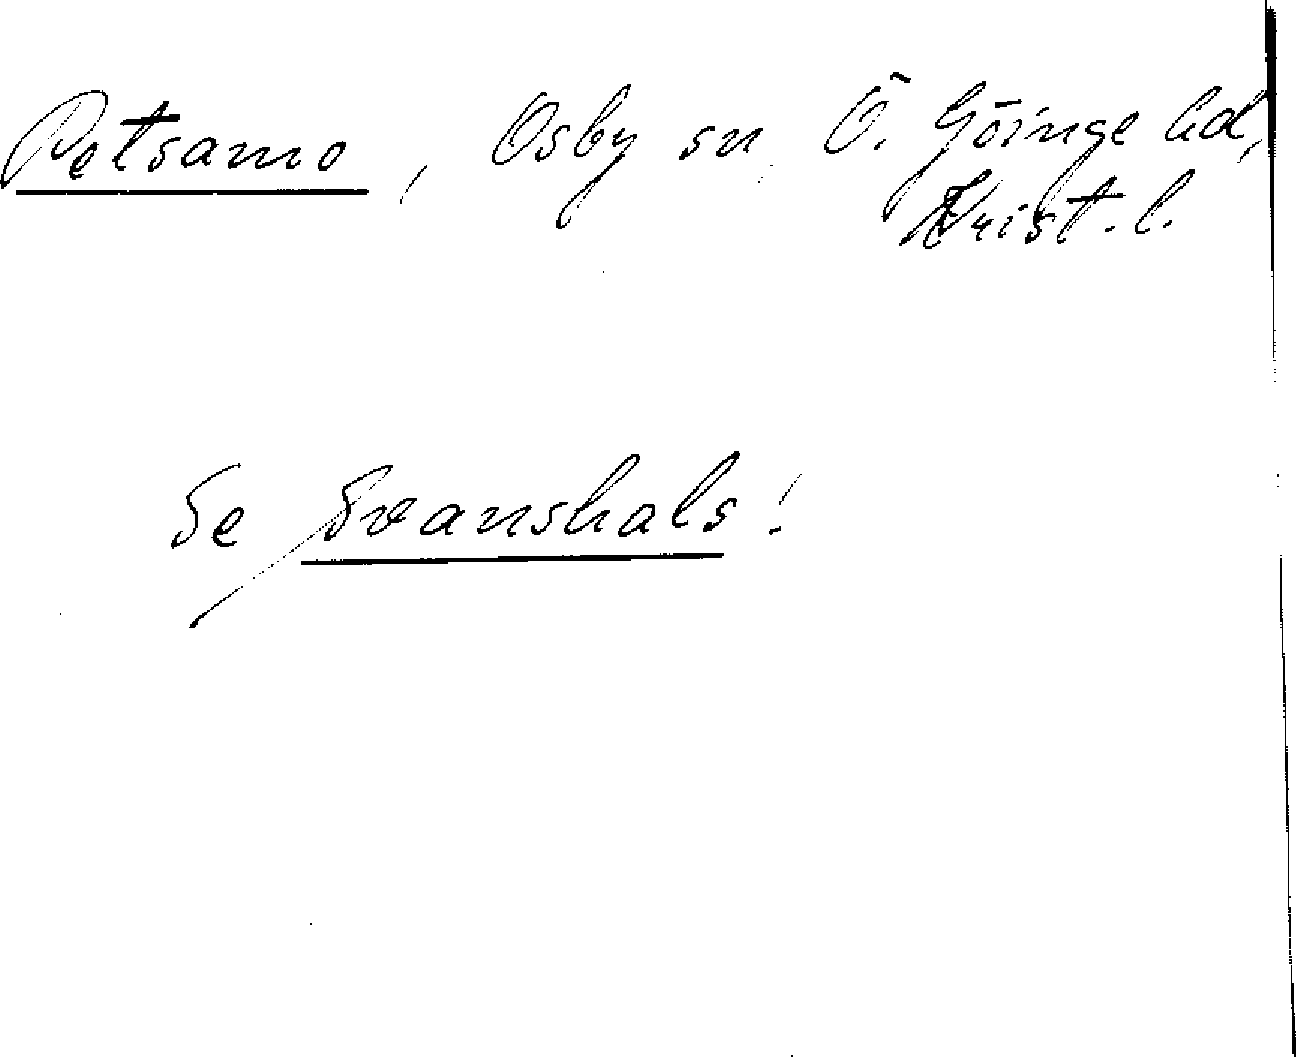 Petsamo, Osby sn Ö. Göinge hd,
Krist. l.
Se Svanshals!